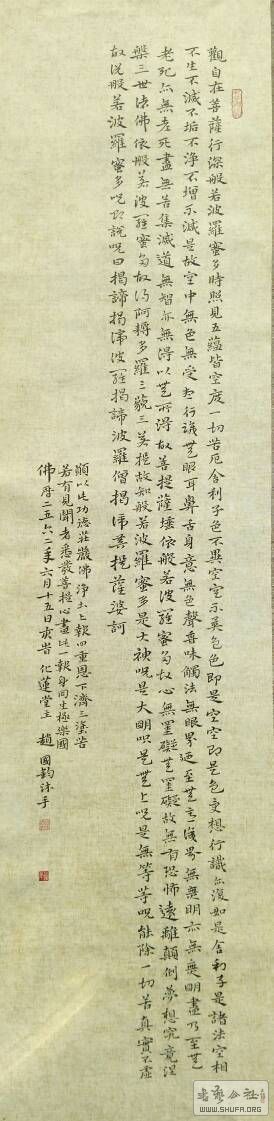 觀自在菩薩行深般若波羅蜜多時照見五蘊皆空度一切苦厄舍利子色不異空空不異色色即是空空即是色受想行識亦復如是舍利子是諸法空相
不生不滅不垢不淨不增不減是故空中無色無受想行識無眼耳鼻舌身意無色聲香味觸法無眼界乃至無意識界無無明亦無無明盡乃至無
老死亦無老死盡無苦集滅道無智亦無得以無所得故菩提薩埵依般若波羅蜜多故心無罣礙無罣礙故無有恐怖遠離顛倒夢想究竟涅
槃三世諸佛依般若波羅蜜多故得阿耨多羅三藐三菩提故知般若波羅蜜多是大神咒是大明咒是無上咒是無等等咒能除一切苦真實不虛
故說般若波羅蜜多咒即說咒曰揭諦揭諦波羅揭諦波羅僧揭諦菩提薩婆訶
願以此功德莊嚴佛淨土上報四重恩下濟三塗苦
若有見聞者悉發菩提心盡此一報身同生極樂國
佛曆二五六二年六月十五日敬書化蓮堂主趙國鈞沐手
WWW.SHUFA.ORG